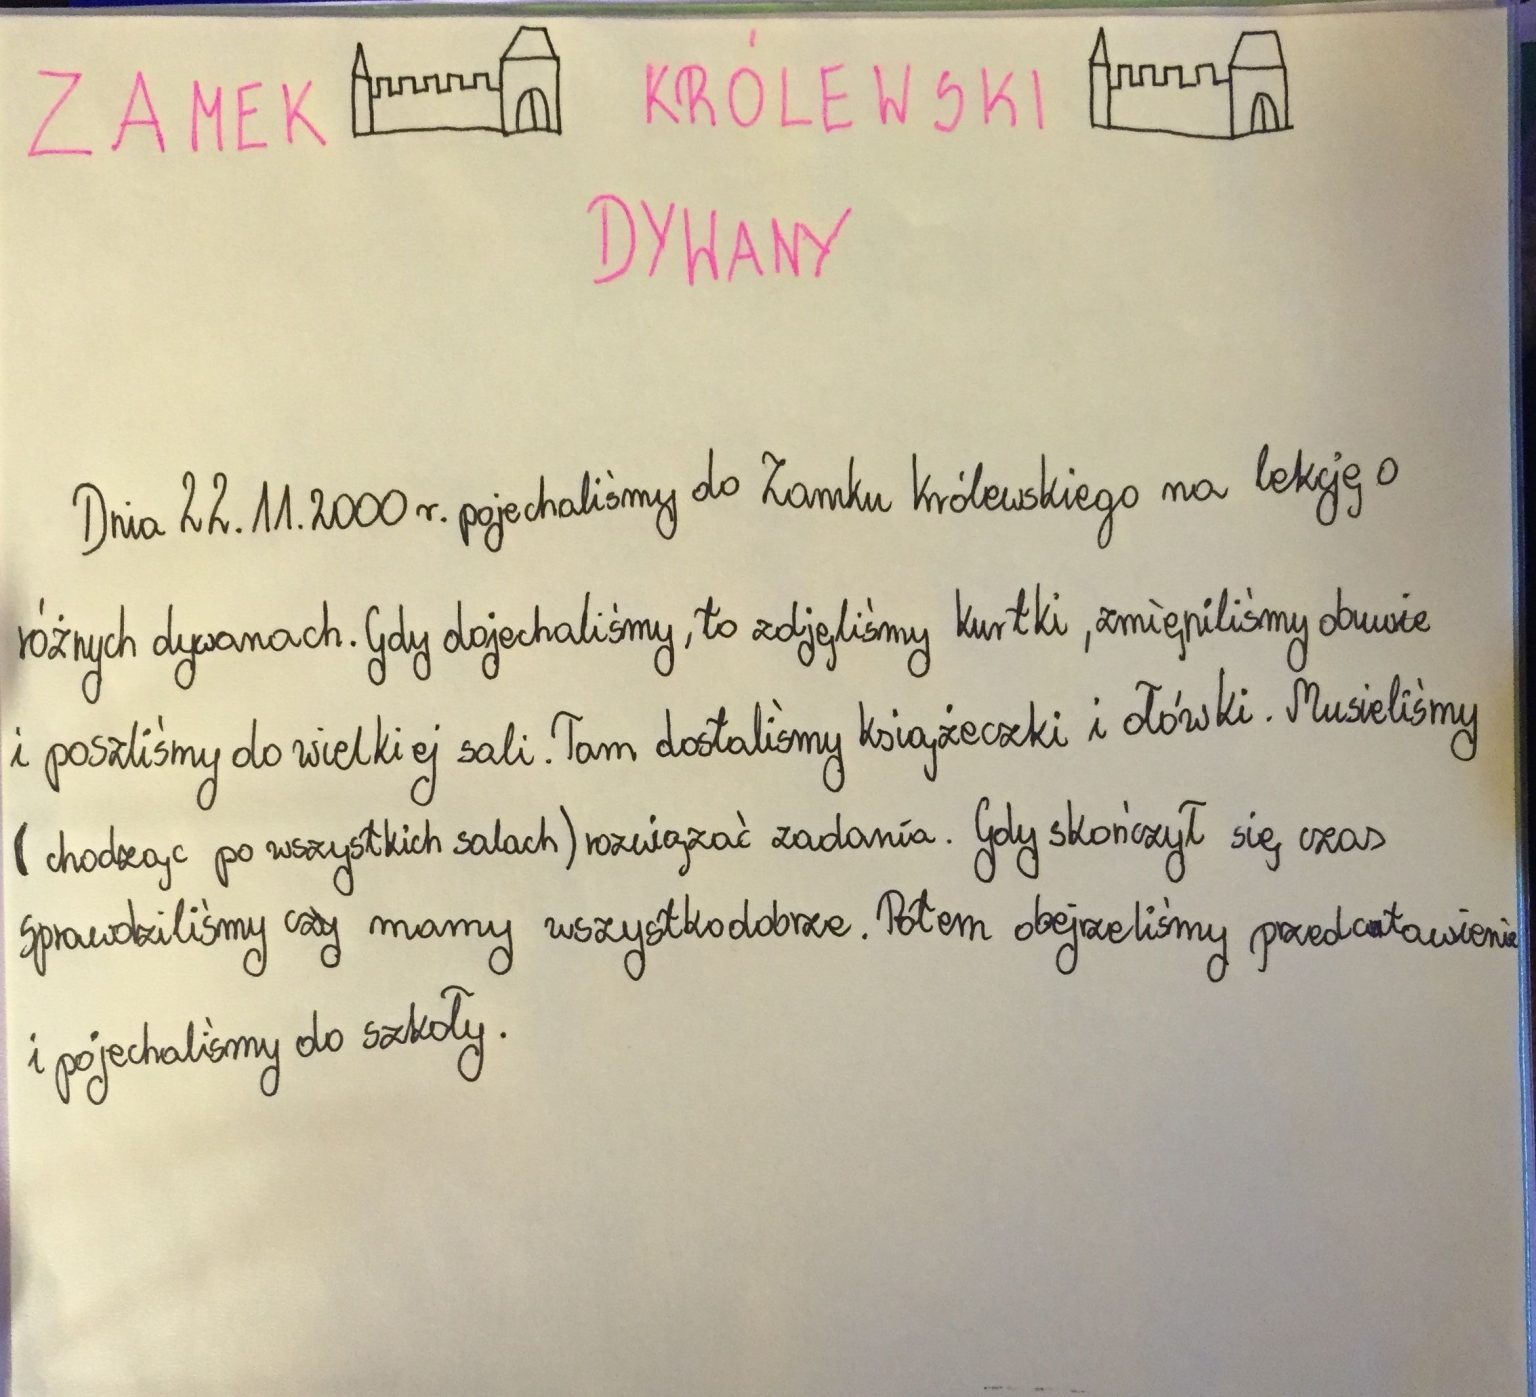 ZAMEK KRÓLEWSKI
DYWANY
Dnia 22.11.2000 r. pojechaliśmy do Zamku Królewskiego na lekcję o
różnych dywanach. Gdy dojechaliśmy, to zdjęliśmy kurtki, zmięniliśmy obuwie
i poszliśmy do wielkiej sali. Tam dostaliśmy książeczki i ołówki. Musieliśmy
(chodząc po wszystkich salach) rozwiązać zadania. Gdy skończył się czas
sprawdziliśmy czy mamy wszystko dobrze. Potem obejrzeliśmy
i pojechaliśmy do szkoły.